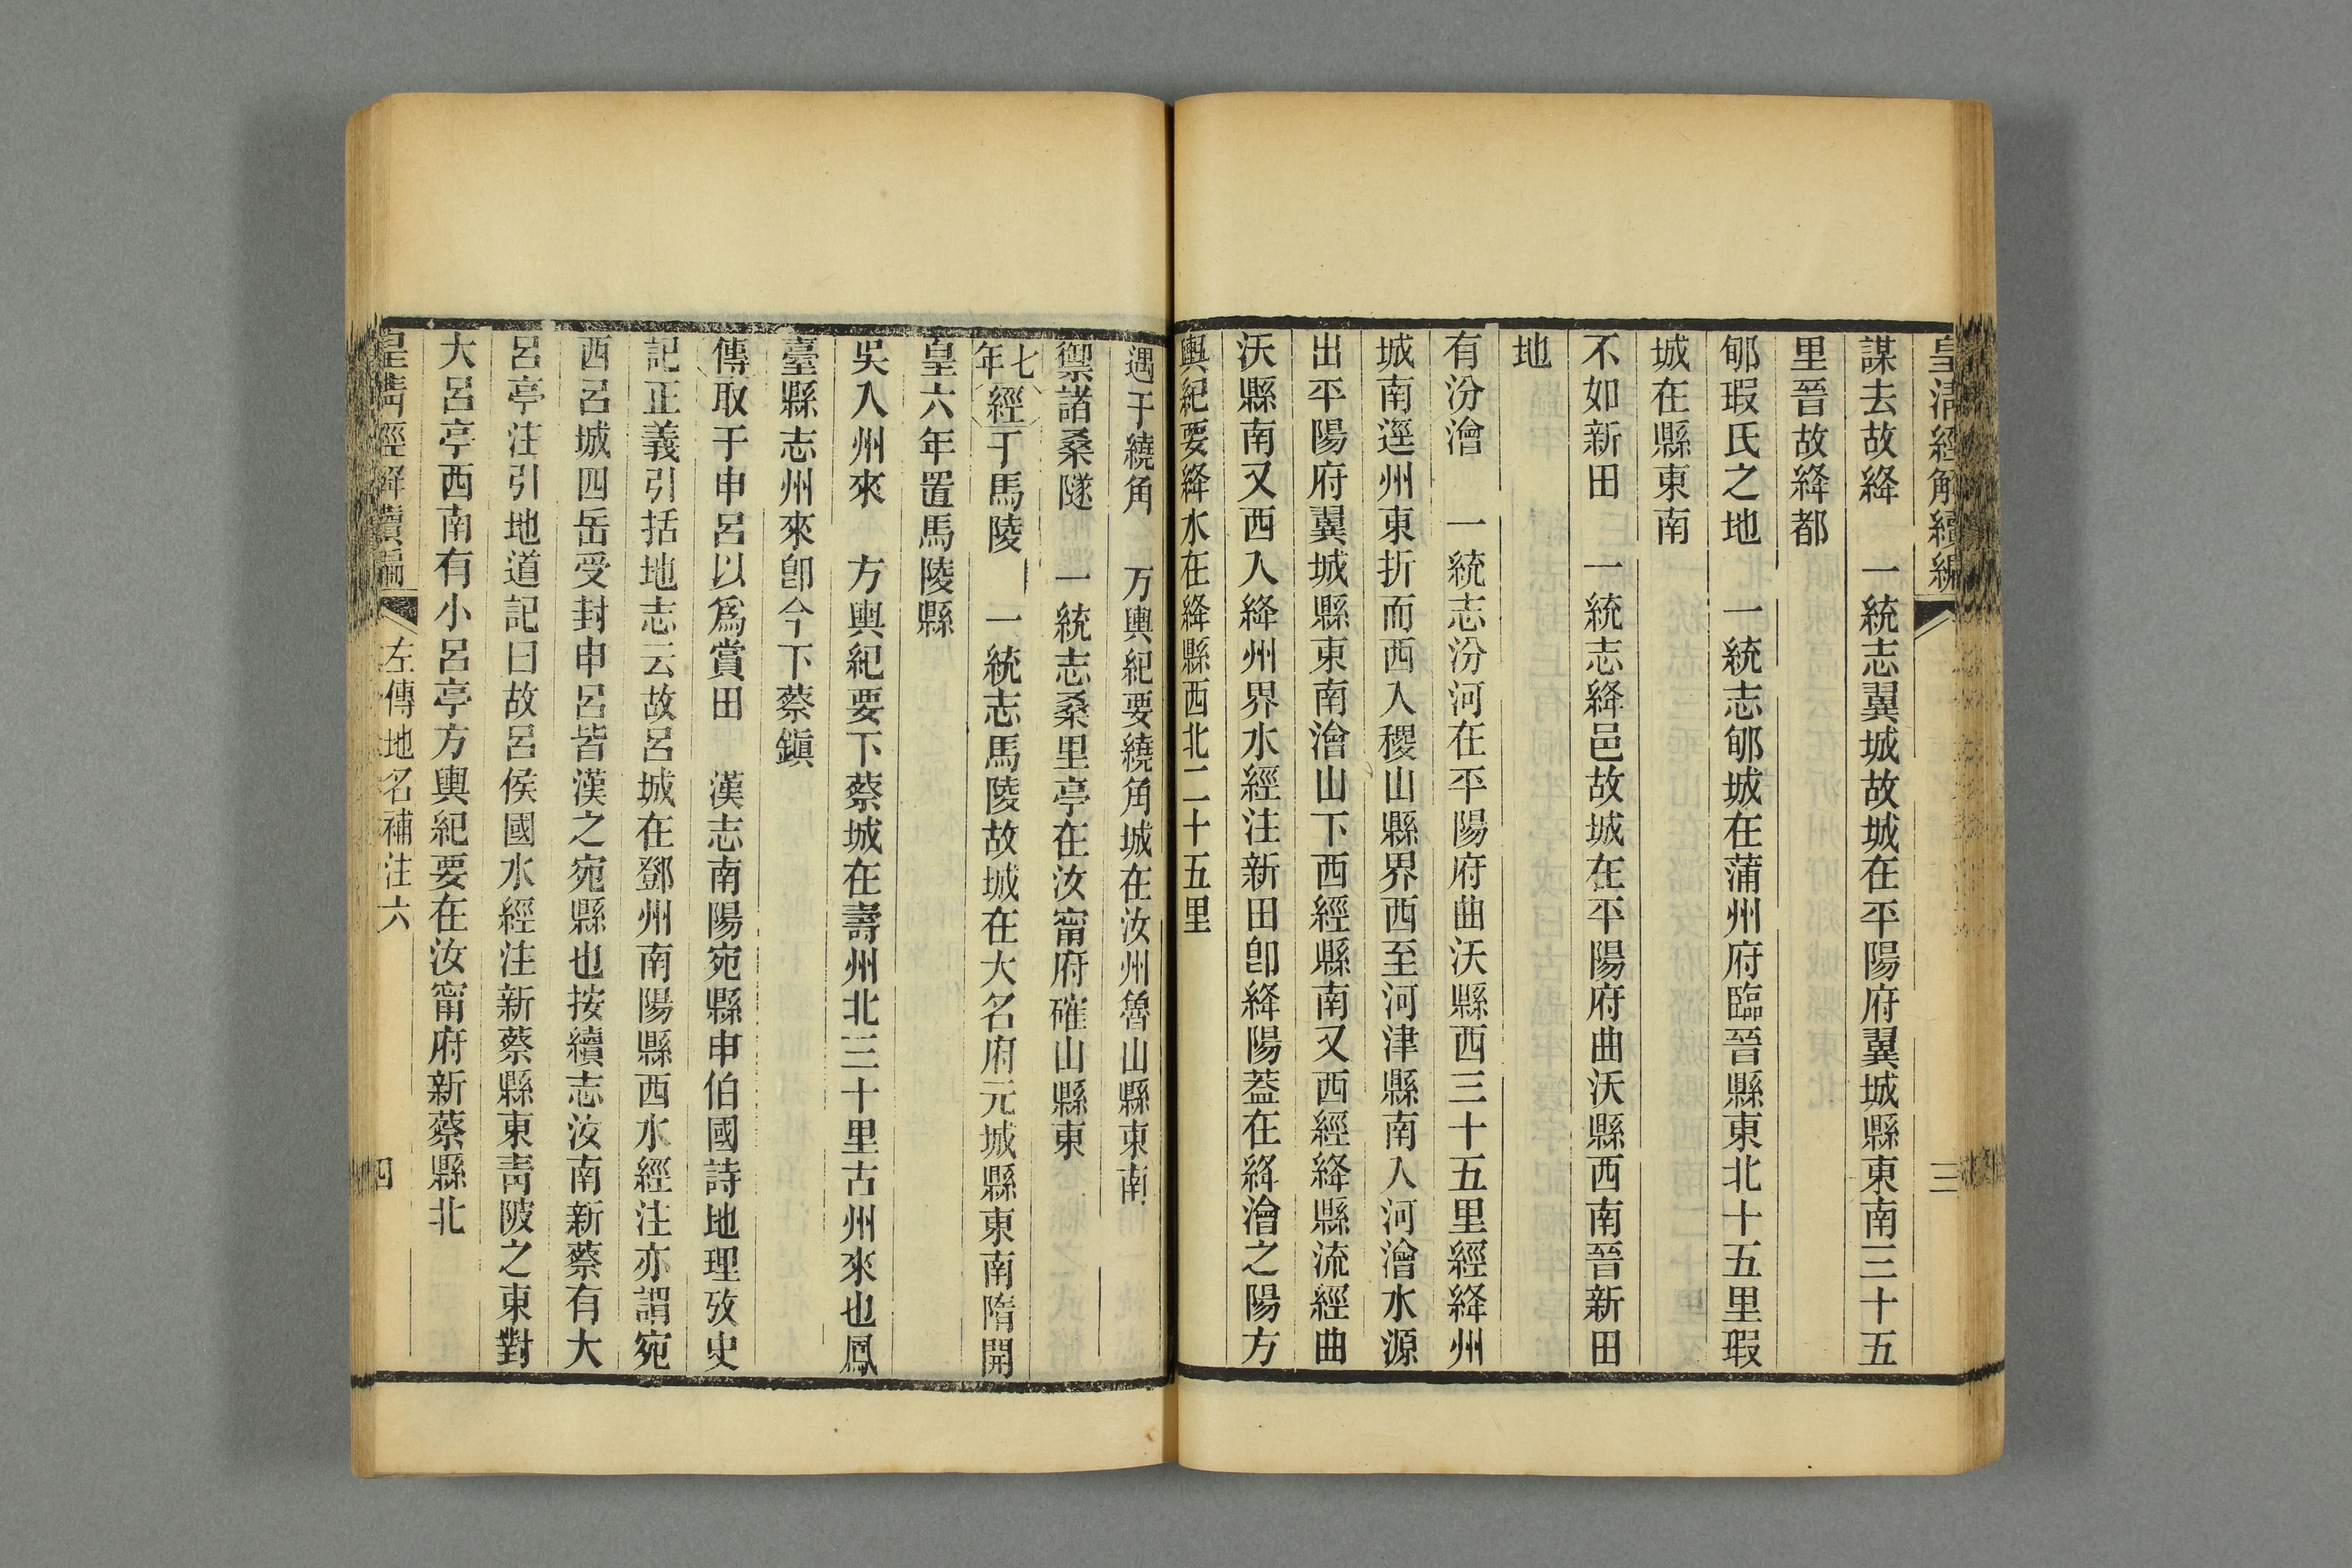 皇淸經解續編 三
謀去故絳 一統志翼城故城在平陽府翼城縣東南三十五
里晉故絳都
郇瑕氏之地 一統志郇城在蒲州府臨晉縣東北十五里瑕
城在縣東南
不如新田 一統志絳邑故城在平陽府曲沃縣西南晉新田
地
有汾澮 一統志汾河在平陽府曲沃縣西三十五里經絳州
城南逕州東折而西入稷山縣界西至河津縣南入河澮水源
出平陽府翼城縣東南澮山下西經縣南又西經絳縣流經曲
沃縣南又西入絳州界水經注新田卽絳陽葢在絳澮之陽方
輿紀要絳水在絳縣西北二十五里
遇于繞角 方輿紀要繞角城在汝州魯山縣東南
禦諸桑隧 一統志桑里亭在汝甯府確山縣東
七年經于馬陵 一統志馬陵故城在大名府元城縣東南隋開
皇六年置馬陵縣
吳入州來 方輿紀要下蔡城在壽州北三十里古州來也鳳
臺縣志州來卽今下蔡鎭
傳取于申呂以爲賞田 漢志南陽宛縣申伯國詩地理攷史
記正義引括地志云故呂城在鄧州南陽縣西水經注亦謂宛
西呂城四岳受封申呂皆漢之宛縣也按續志汝南新蔡有大
呂亭注引地道記曰故呂侯國水經注新蔡縣東靑陂之東對
大呂亭西南有小呂亭方輿紀要在汝甯府新蔡縣北
皇淸經解續編 左傳地名補注六 四